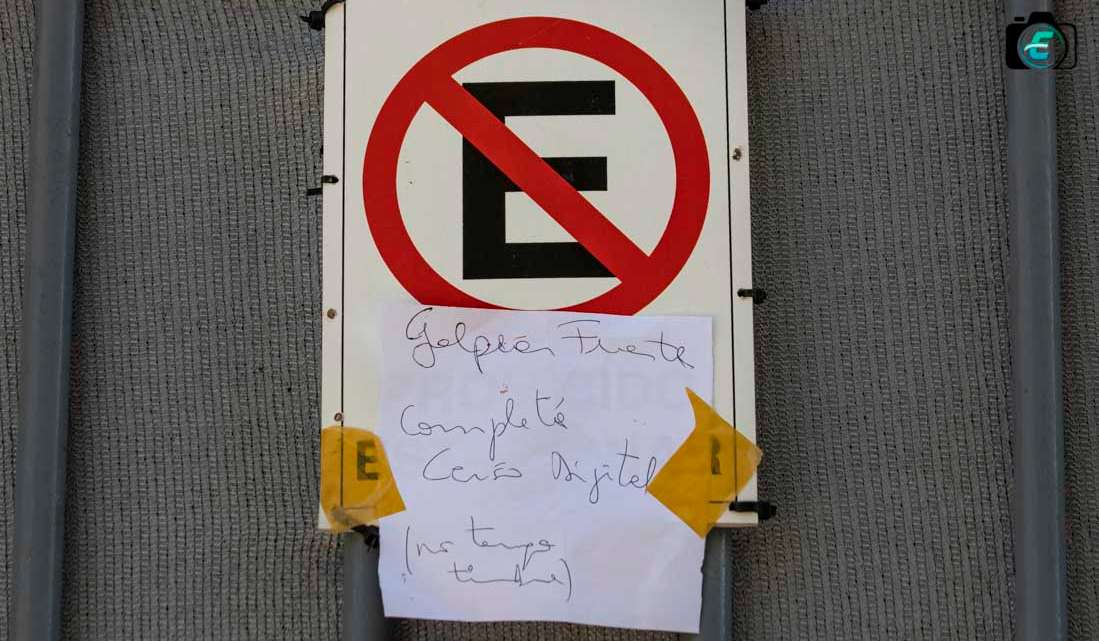 E
Golpear Fuerte
Completé
Censo Digital
(no tengo
timbre)
E
R
E